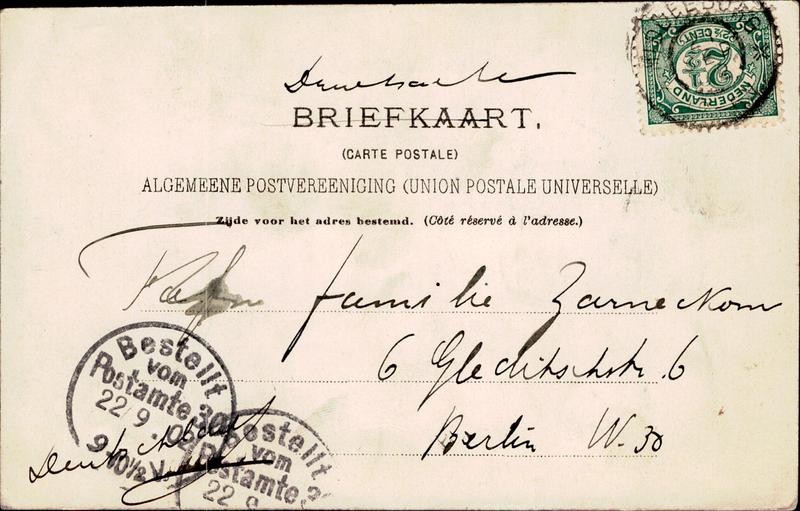 Drucksache
BRIEFKAART.
(CARTE POSTALE)
ALGEMEENE POSTVEREENIGING (UNION POSTALE UNIVERSELLE)
Zijde voor het adres bestemd. (Côté réservé à l'adresse.)
Familie Zarneckow
6 Gleditschstr. 6
Berlin W. 30
Deutschland
Bestellt
vom
Postamte 30
22/9 05
9-10½ V
Bestellt
vom
Postamte 3
22 9
2½
NEDERLAND
2½ CENT